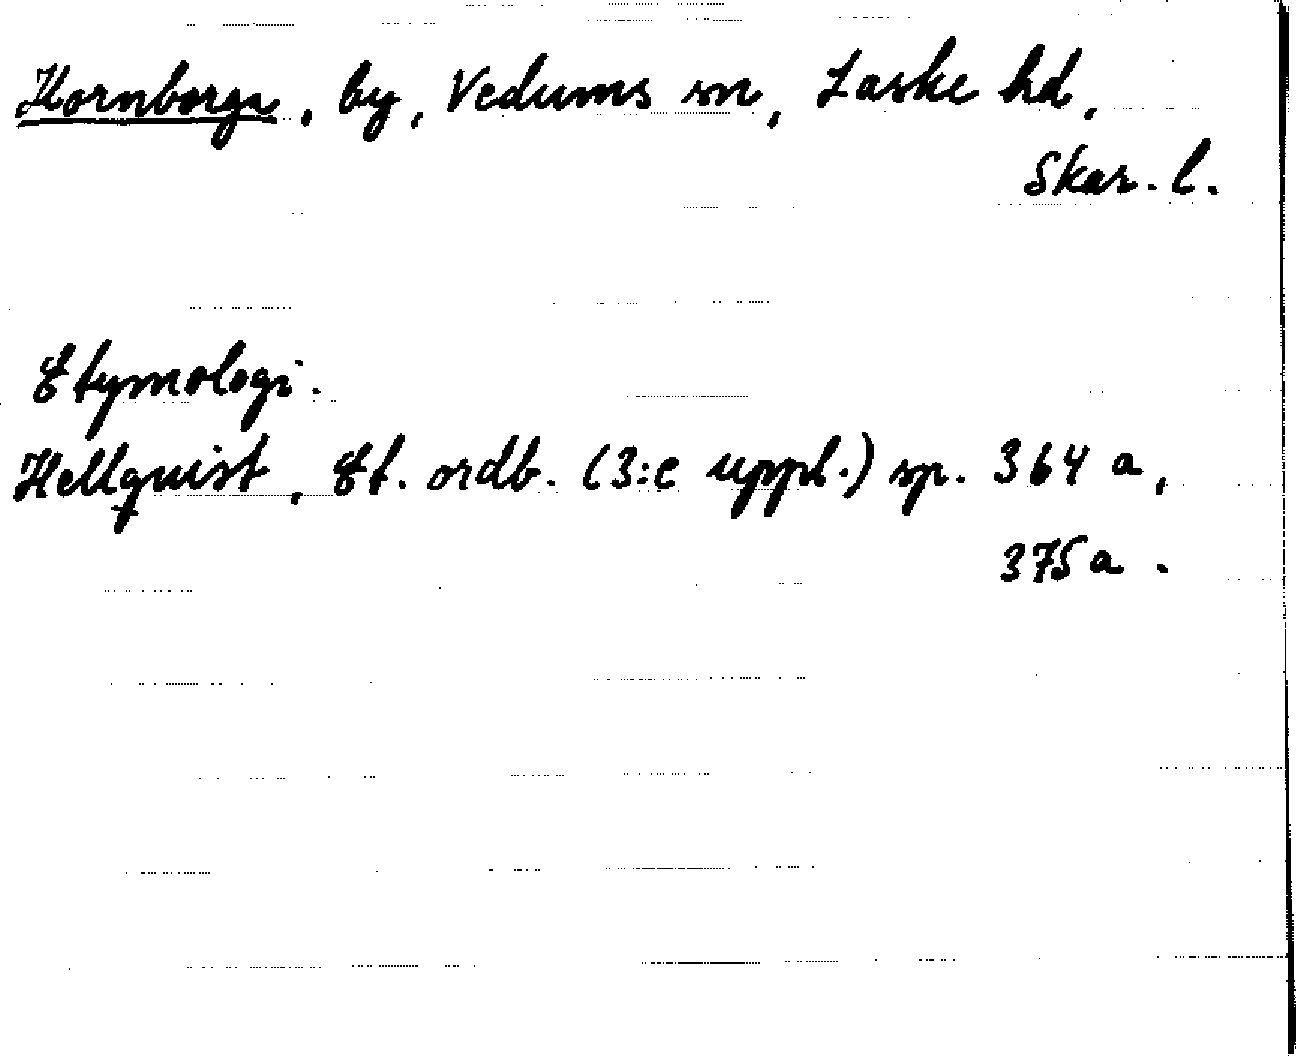 Hornborga, by, Vedums sn, Laske hd,
Skar. l.
Etymologi.
Hellquist, Et. ordb. (3:e uppl.) sp. 364 a,
375 a.